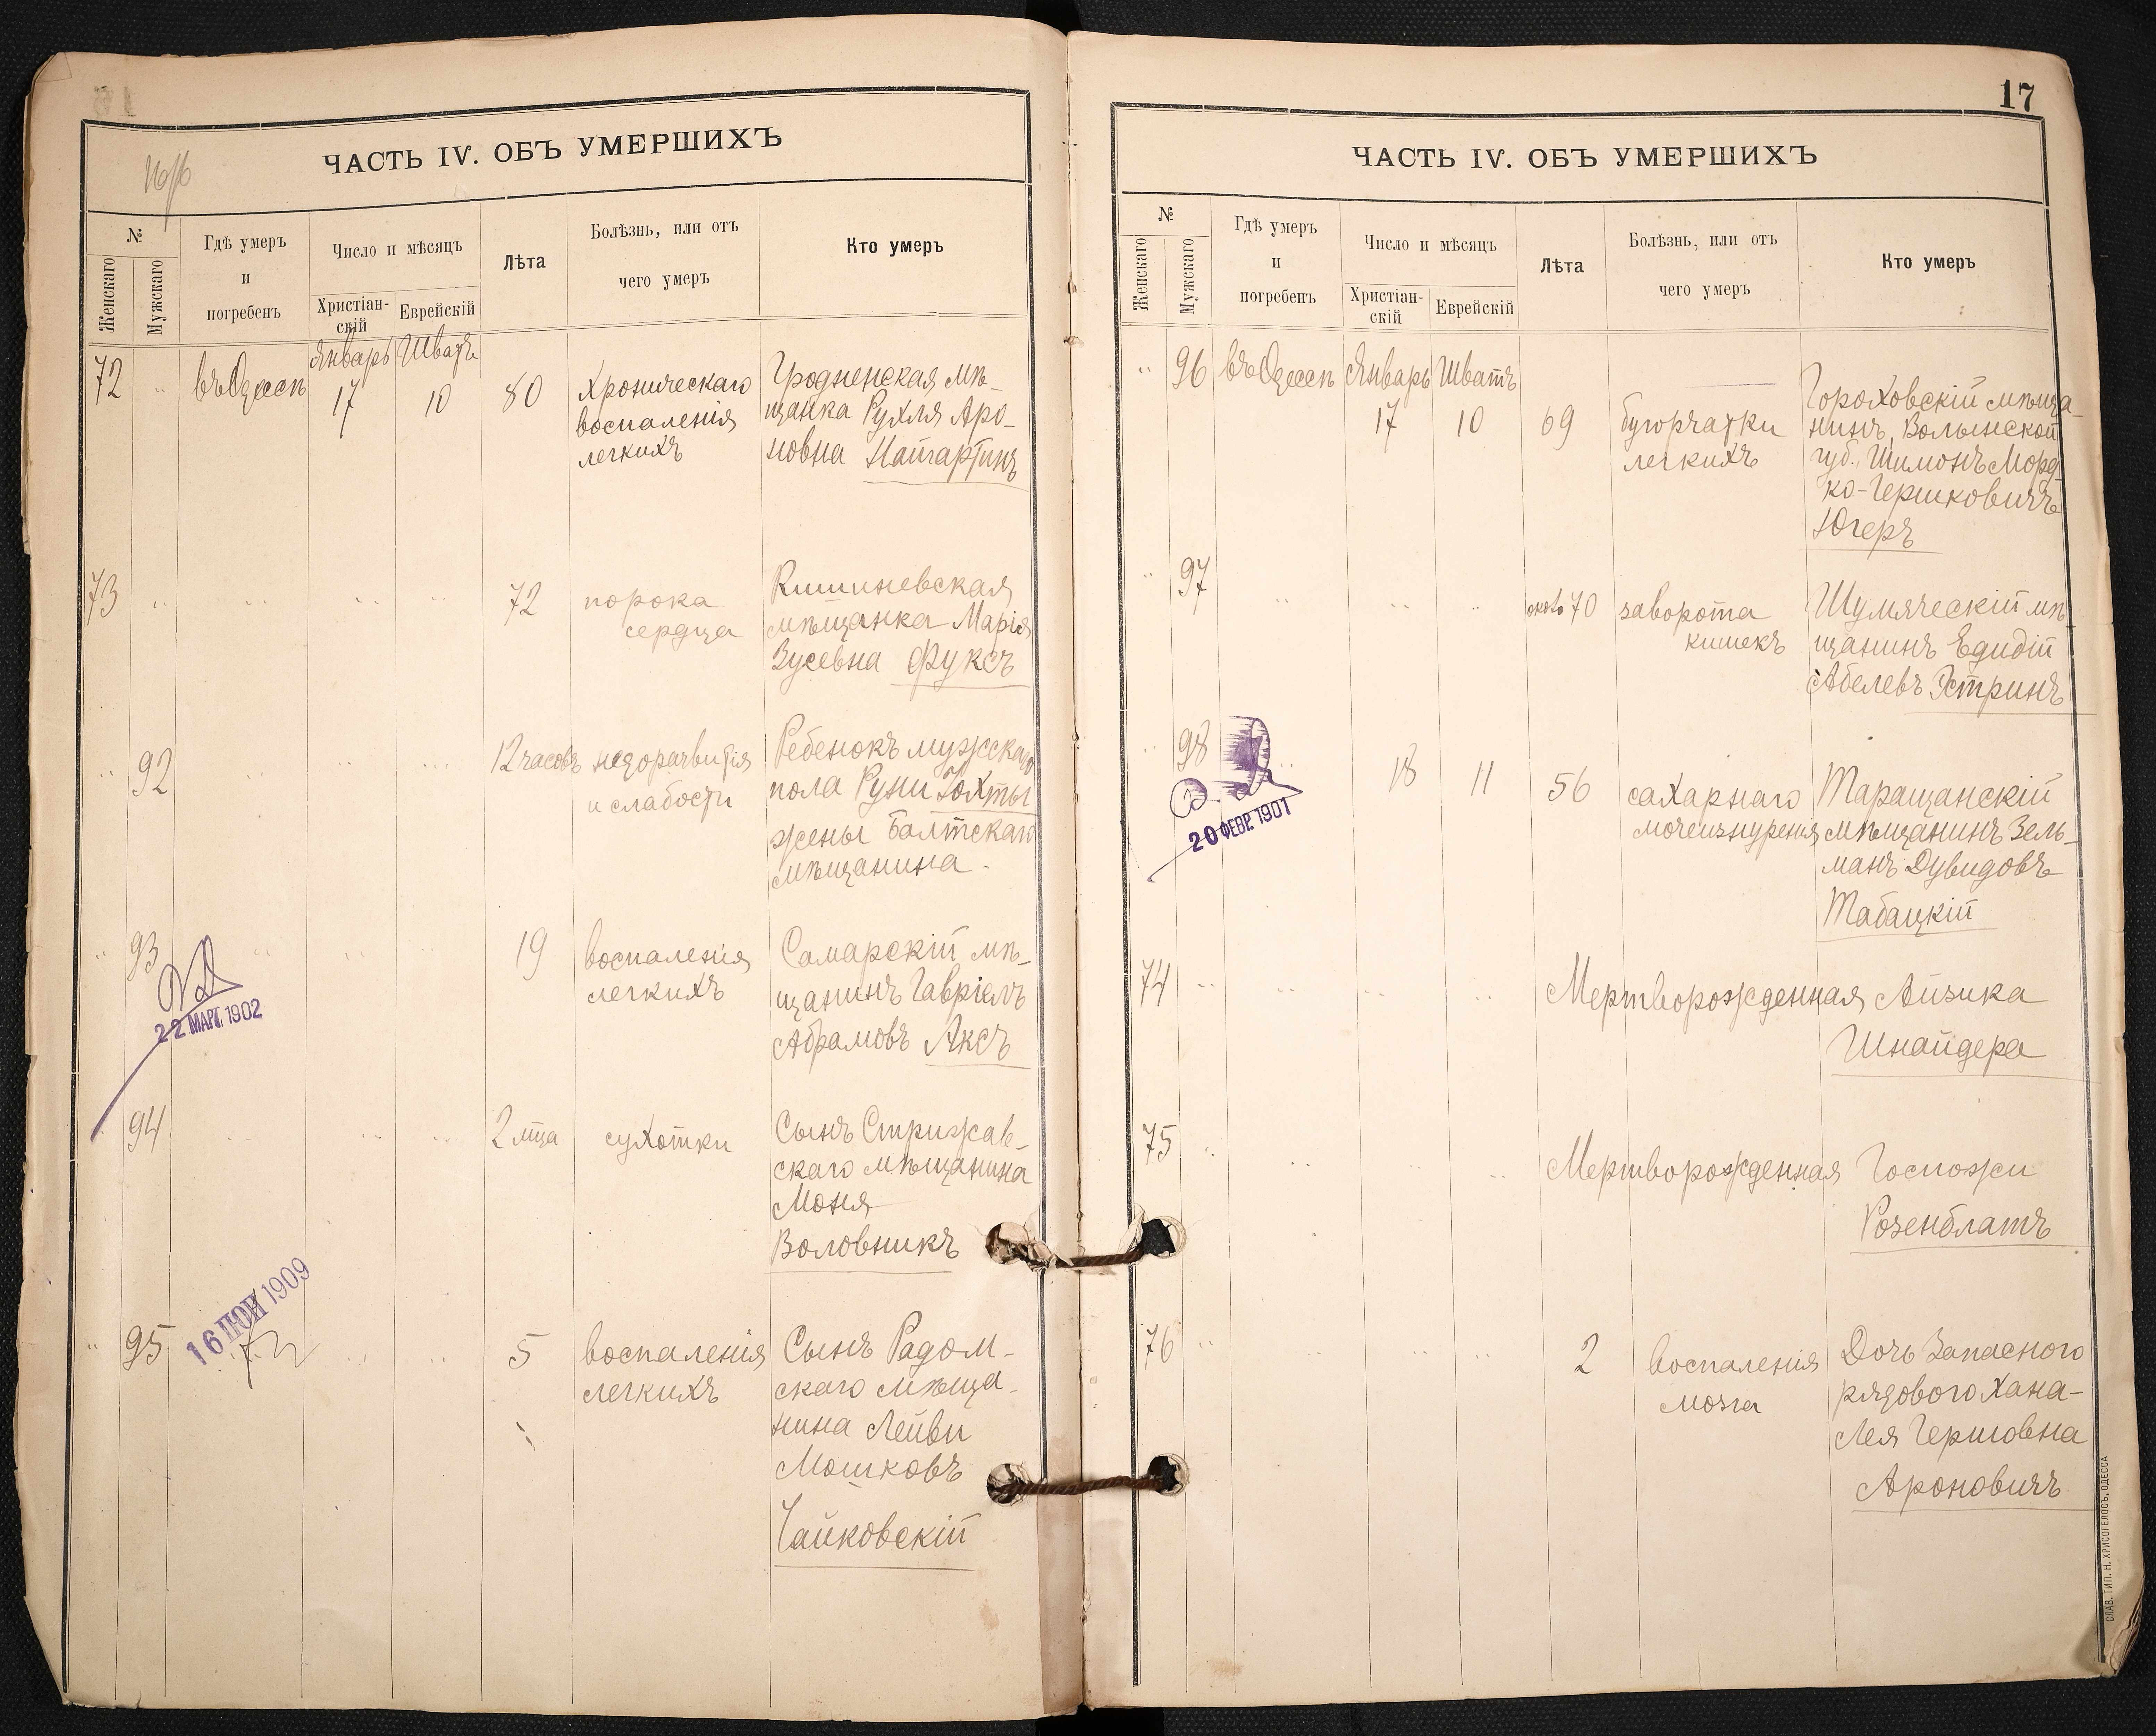 ЧАСТЬ IV. ОБЪ УМЕРШИХЪ
№
Женскаго
Мужскаго
Гдѣ умеръ
и
погребенъ
Число и мѣсяцъ
Христіан-
скій
Еврейскій
Лѣта
Болѣзнь, или отъ
чего умеръ
Кто умеръ
72 " въ Одессѣ Январь 17 Шватъ 10 80
Хроническаго
воспаленія
легкихъ
Гродненская мѣ-
щанка Рухля Аро-
новна Найгартинъ
73 " " " " 72
порока
сердца
Кишиневская
мѣщанка Марія
Зусевна Фуксъ
" 92 " " " 12 часовъ
недоразвитія
и слабости
Ребенокъ мужскаго
пола Руни Тохты
жены Балтскаго
мѣщанина.
" 93 " " " 19
воспаленія
легкихъ
Самарскій мѣ-
щанинъ Гавріелъ
Абрамовъ Аксъ
22 МАРТ. 1902
94 " " " 2 мца
сухотки
Сынъ Стрижав-
скаго мѣщанина
Моня
Воловникъ
16 ІЮН 1909
" 95 " " " 5
воспаленія
легкихъ
Сынъ Радом-
скаго мѣща-
нина Лейви
Мошковъ
Чайковскій
17
ЧАСТЬ IV. ОБЪ УМЕРШИХЪ
№
Женскаго
Мужскаго
Гдѣ умеръ
и
погребенъ
Число и мѣсяцъ
Христіан-
скій
Еврейскій
Лѣта
Болѣзнь, или отъ
чего умеръ
Кто умеръ
" 96 въ Одессѣ Январь 17 Шватъ 10 69
бугорчатки
легкихъ
Гороховскій мѣща-
нинъ, Волынской
губ., Шимонъ Морд-
ко-Гершковичъ
Югеръ
" 97 " " " около 70
заворота
кишекъ
Шумяческій мѣ-
щанинъ Едидій
Абелевъ Эстринъ
" 98 " 18 11 56
сахарнаго
мочеизнуренія
Таращанскій
мѣщанинъ Зель-
манъ Дувидовъ
Табацкій
20 ФЕВР. 1901
74 " " " "
Мертворожденная Айзика
Шнайдера
75 " " " "
Мертворожденная Госпожи
Розенблатъ
76 " " " " 2
воспаленія
мозга
Дочь Запасного
рядового Хана-
Лея Гершовна
Ароновичъ
СЛАВ. ТИП. Н. ХРИСОГЕЛОСЪ, ОДЕССА